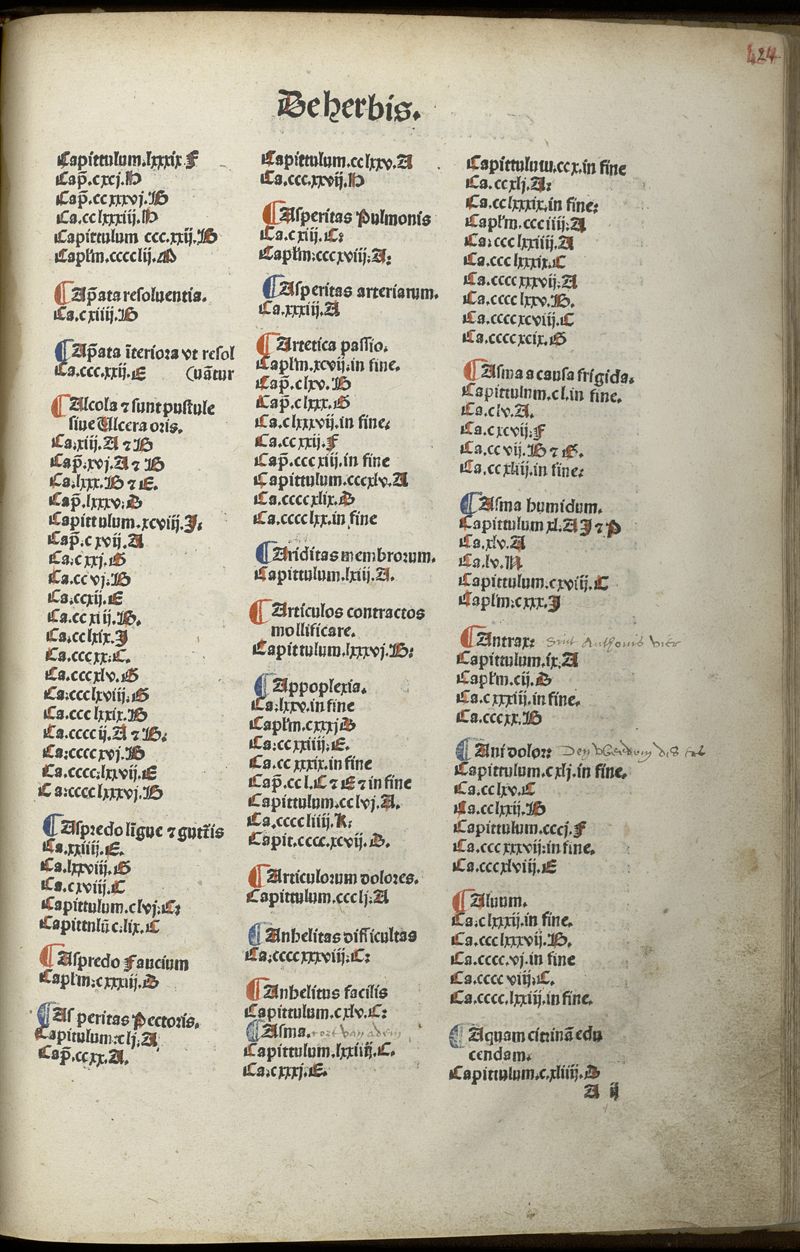 424
De herbis.
Capittulum.lxxxix.f
Cap̃.cxcj.D
Cap̃.ccxxxvj.B
Ca.cclxxxiij.D
Capittulum ccc.xxij.B
Caplm̃.cccclij.A
¶ Ap̃ata resoluentia.
Ca.cxiiij.B
¶ Ap̃ata ĩteriora vt resol
Ca.ccc.xxij.E (uãtur
¶ Alcola ⁊ sunt pustule
siue Vlcera oris.
Ca.xiij.A ⁊ B
Cap̃.xvj.A ⁊ B
Ca.lxxx.B ⁊ E.
Cap̃.lxxxv.D
Capittulum.xcviij.J.
Cap̃.cxvij.A
Ca.cxxj.G
Ca.ccvj.B
Ca.ccxij.E
Ca.ccxiij.B.
Ca.cclxix.J
Ca.cccxx.C.
Ca.cccxlv.G
Ca.ccclxviij.G
Ca.ccclxxix.B
Ca.ccccij.A ⁊ B.
Ca.ccccxvj.B
Ca.cccc.lxxvij.E
Ca.cccclxxxvj.B
¶ Aspredo lĩgue ⁊ gutt̃is
Ca.xxiiij.E.
Ca.lxxviij.G
Ca.cxviij.C
Capittulum.clvj.C:
Capittulũ c.lix.C
¶ Aspredo faucium
Caplm̃.cxxxiij.D
¶ Asperitas Pectoris.
Capitulum.clj.A
Cap̃.ccxx.A.
Capittulum.cclxxv.A
Ca.ccc.xxvij.D
¶ Asperitas Pulmonis
Ca.cxiij.C:
Caplm̃.cccxviij.A:
¶ Asperitas arteriarum.
Ca.xxxiij.A
¶ Artetica passio.
Caplm̃.xcvij.in fine.
Cap̃.clxv.B
Cap̃.clxxx.G
Ca.clxxxvij.in fine:
Ca.ccxxij.f
Cap̃.cccxiij.in fine
Capittulum.cccxlv.A
Ca.ccccxlix.D
Ca.cccclxx.in fine
¶ Ariditas membrorum.
Capittulum.lxiij.A.
¶ Articulos contractos
mollificare.
Capittulum.lxxxvj.B:
¶ Appoplexia.
Ca.lxxv.in fine
Caplm̃.cxxxj D
Ca.ccxxiiij.E.
Ca.ccxxxix.in fine
Cap̃.ccl.C ⁊ E ⁊ in fine
Capittulum.cclvj.A.
Ca.ccccliiij.K:
Capit.cccc.xcvij.D.
¶ Articulorum dolores.
Capittulum.ccclj.A
¶ Anhelitas difficultas
Ca.ccccxxxviij.C:
¶ Anhelitus facilis
Capittulum.cxlv.C:
¶ Asma.
Capittulum.lxxiiij.C.
Ca.cxxxj.E.
Capittulum.ccx.in fine
Ca.ccxlj.A:
Ca.cclxxxix.in fine:
Caplm̃.ccciiij.A
Ca.ccclxxiiij.A
Ca.ccclxxxix.C
Ca.ccccxxxvij.A
Ca.cccclxxv.B.
Ca.ccccxcviij.C
Ca.ccccxcix.G
¶ Asma a causa frigida.
Capittulum.cl.in fine.
Ca.clv.A.
Ca.cxcvij.f
Ca.ccvij.B ⁊ G.
Ca.ccxliij.in fine:
¶ Asma humidum.
Capittulum xl.A J ⁊ P
Ca.xlv.A
Ca.lv.N
Capittulum.cxviij.C
Caplm̃.cxxx.J
¶ Antrax:
Capittulum.ix.A
Caplm̃.cij.D
Ca.cxxxiij.in fine.
Ca.cccxx.B
¶ Ani dolor:
Capittulum.cxlj.in fine.
Ca.cclxv.C
Ca.cclxxij.B
Capittulum.cccj.f
Ca.cccxxxvij:in fine.
Ca.cccxlviij.E
¶ Aluum.
Ca.clxxxij.in fine.
Ca.ccclxxxvij.B.
Ca.cccc.vj.in fine
Ca.ccccviij.C.
Ca.cccc.lxxiij.in fine.
¶ Aquam citrinã edu
cendam.
Capittulum.c.xliiij.D
A ij